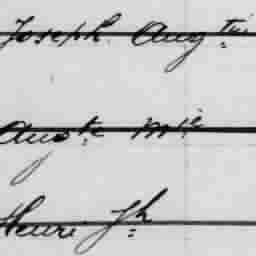 Joseph. Aug.tin
Aug.te
Henri Jh